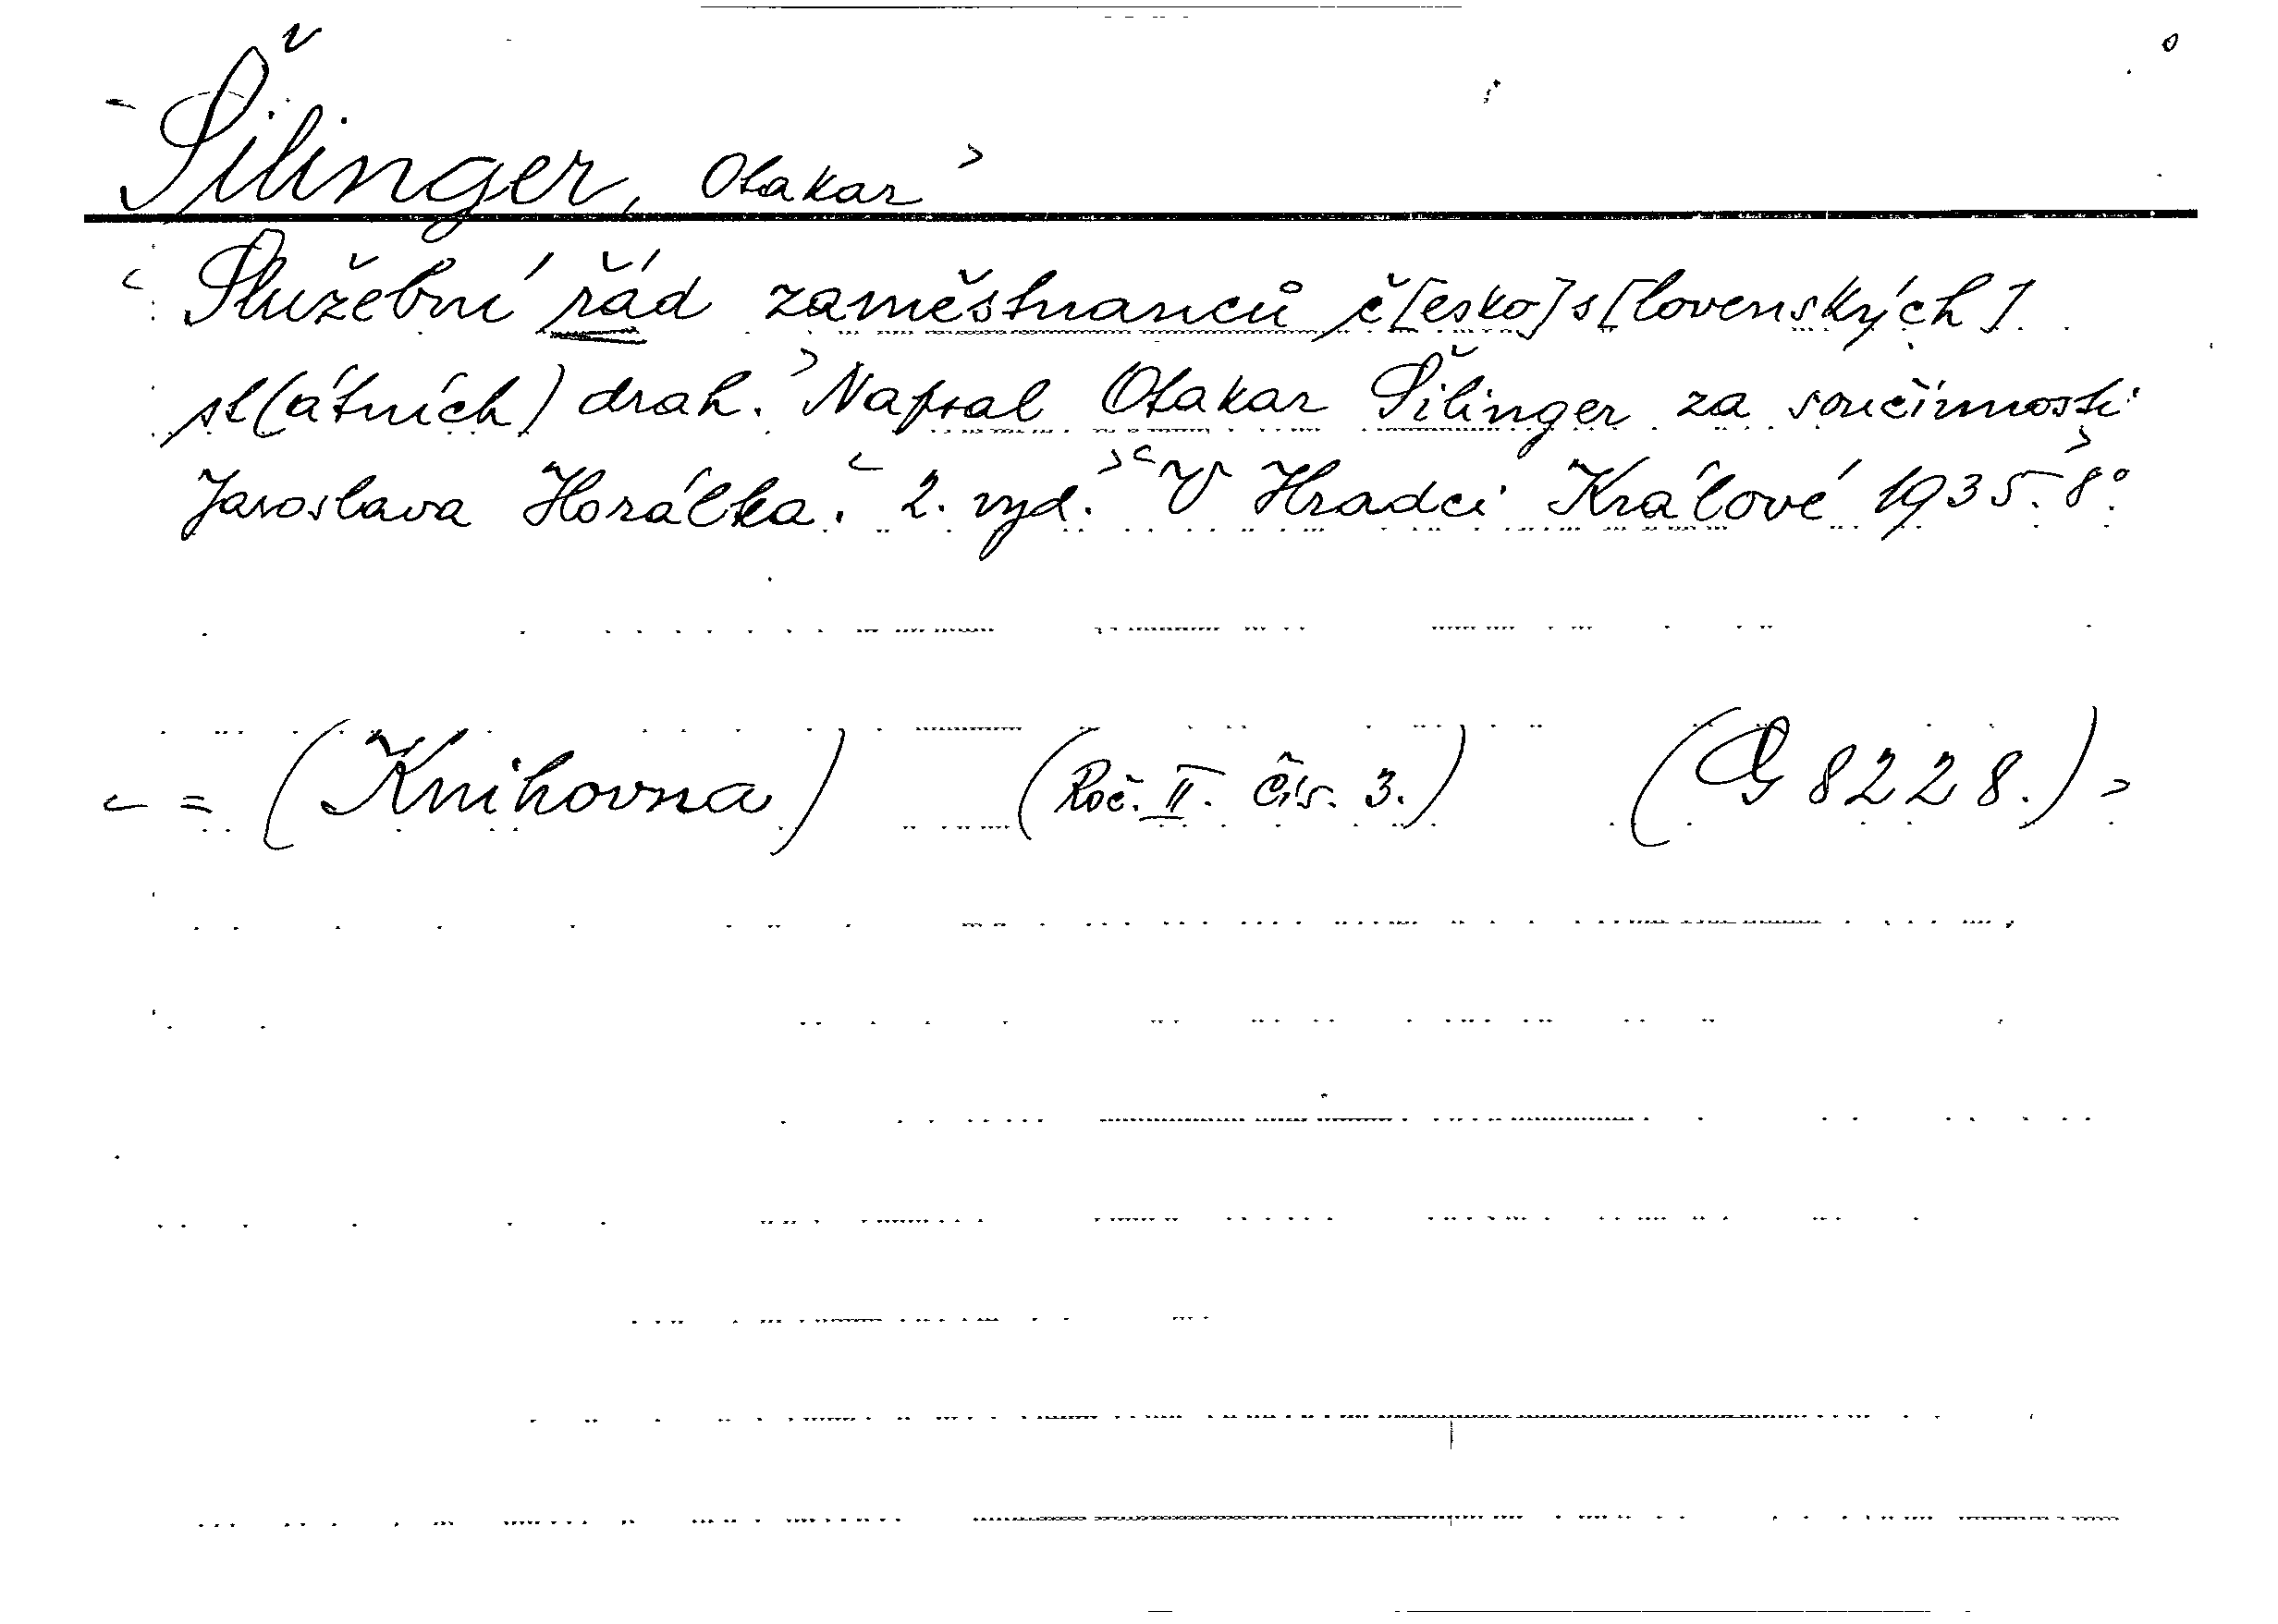 Šilinger, Otakar
Služební řád zaměstnanců č[esko]s[lovenských]
st(átních) drah. Napsal Otakar Šilinger za součinnosti
Jaroslava Horálka. 2. vyd. V Hradci Králové 1935. 8°.
= (Knihovna) (Roč. II. Čís. 3.) (G 8228.)